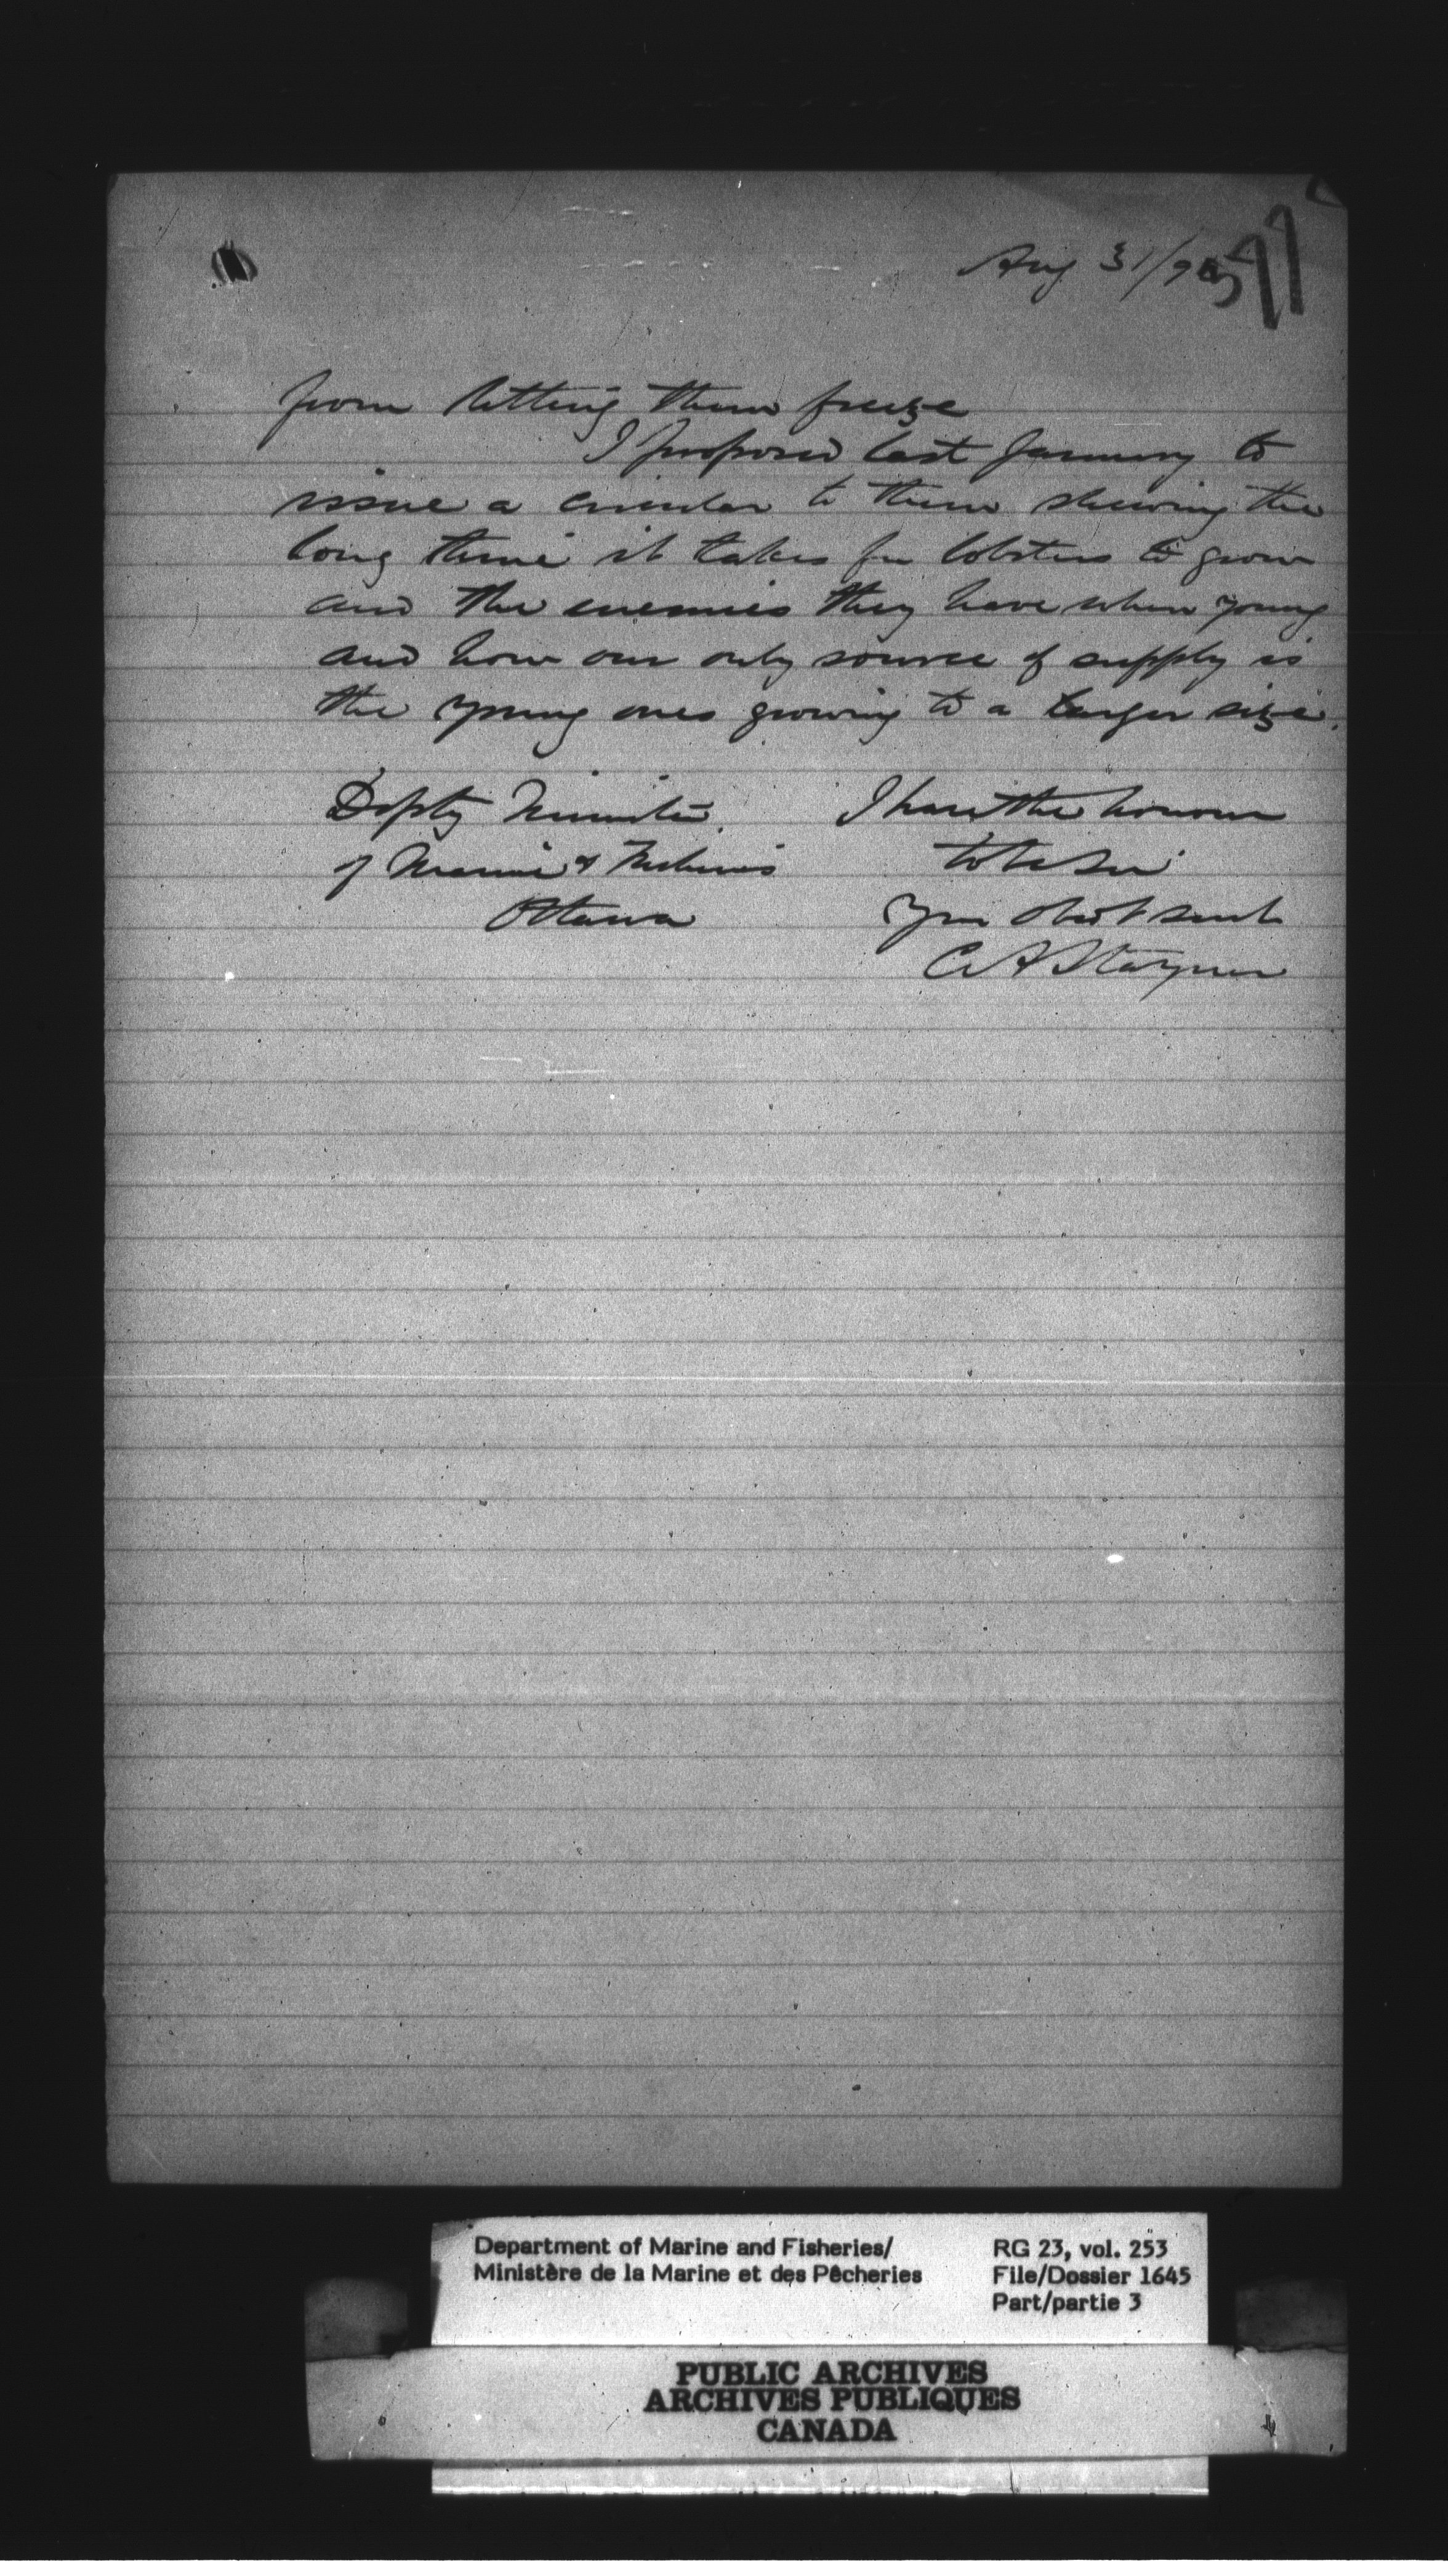 Aug 31/95
from letting them freeze
I proposed last January to
issue a circular to them shewing the
long time it takes for lobsters to grow
and the enemies they have when young
and how our only source of supply is
the young ones growing to a larger size.
Depty Minister I have the honour
of Marine & Fisheries to be Sir
Ottawa Your Obdt Servt
C A Stayner
Department of Marine and Fisheries/
Ministère de la Marine et des Pêcheries
RG 23, vol. 253
File/Dossier 1645
Part/partie 3
PUBLIC ARCHIVES
ARCHIVES PUBLIQUES
CANADA